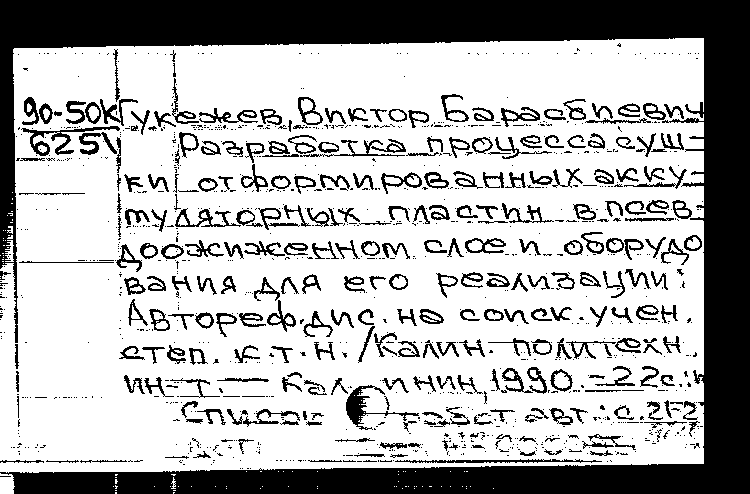 90-50К Гукежев, Виктор Барасбиевич
6251 Разработка процесса суш-
ки отформированных акку-
муляторных пластин в псев-
доожиженном слое и оборудо
вания для его реализации:
Автореф. дис. на соиск. учен.
степ. к.т.н. / Калин. политехн.
ин-т. — Калинин, 1990. - 22с.:
Список работ авт.: с. 21-2